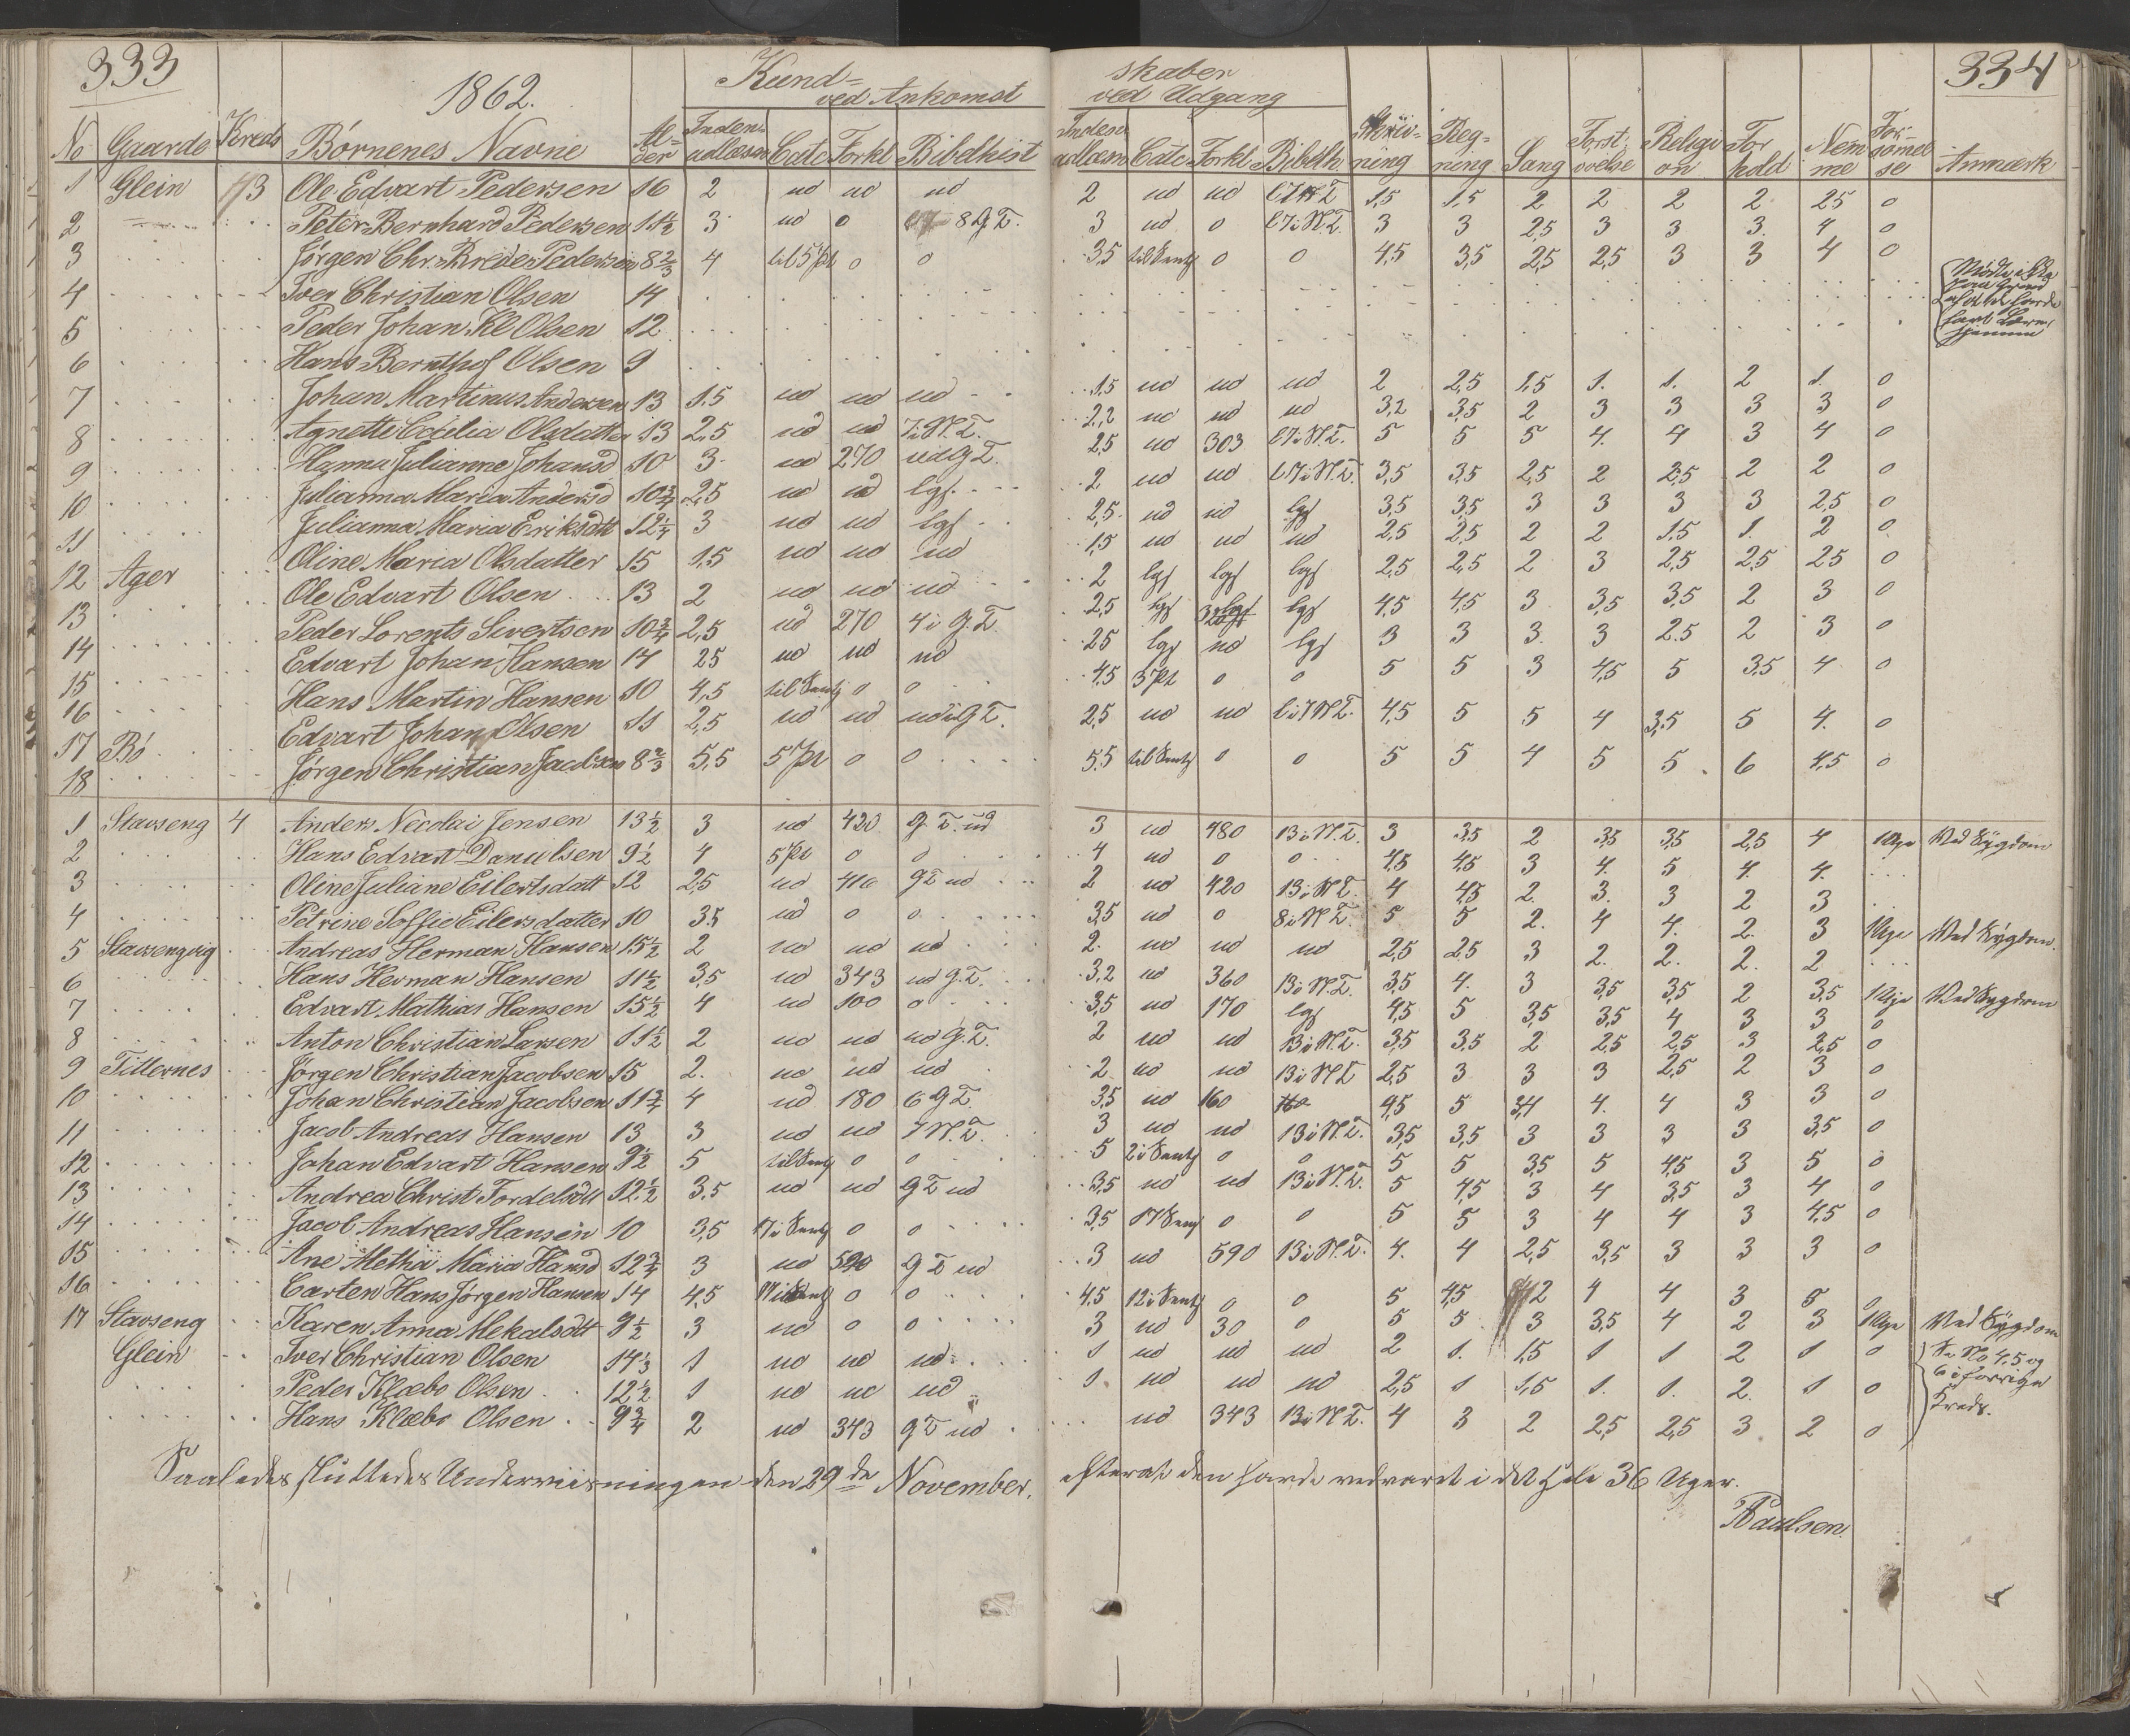 333
1862.
Kund- skaber
334
ved Ankomst ved Udgang
No Gaarde Kreds Børnenes Navne Al-der Inden-adlæsn Cate Forkl Bibelhist Inden adlæsn Cate Forkl Bibelh Skriv-ning Reg-ning Sang Forst. Religi on For hold Nem me For-sømmel se Anmærk
1 Glein 3 Ole Edvart Pedersen 16 2 ud ud ud 2 ud ud 1,5 1,5 2 2 2 2 25 0
2 Peter Bernhard Pedersen 11½ 3 ud 0 8 G.T. 3 ud 0 3 3 2,5 3 3 3. 4 0
3 Jørgen Chr. Pedersen 8⅔ 4 til 5 Pt 0 0 3,5 0 0 4,5 3,5 2,5 2,5 3 3 4 0
4 Iver Christian Olsen 14
5 Peder Johan Kl Olsen 12
6 Hans Bernthof Olsen 9
7 Johan Martinus Andersen 13 1.5 ud ud ud 1,5 ud ud ud 2 2,5 1,5 1. 1. 2 1. 0
8 Agnette Cecilia Olsdatter 13 2,5 ud ud 7 i N.T. 2,2 ud ud ud 3,2 3,5 2 3 3 3 3 0
9 Hanna Julianne Johansd 10 3 ud 270 ud G T. 2,5 ud 303 5 5 5 4. 4 3 4 0
10 Julianna Maria Andersd 10¾ 2,5 ud ud lgs. 2 ud ud 3,5 3,5 2,5 2 2,5 2 2 0
11 Julianna Maria Eriksdtt 12¼ 3 ud ud lgs 2,5. ud ud lgs 3,5 3,5 3 3 3 3 2,5 0
12 Ager Oline Maria Olsdatter 15 1.5 ud ud ud 1,5 ud ud ud 2,5 2,5 2 2 1.5 1. 2 0
13 Ole Edvart Olsen 13 2 ud ud ud 2 lgs lgs lgs 2,5 2,5 2 3 2,5 2,5 25 0
14 Peder Lorents Sivertsen 10¾ 2,5 ud 270 4 i G.T. 2,5 lgs lgs 4,5 4,5 3 3,5 3,5 2 3 0
15 Edvart Johan Hansen 14 25 ud ud ud 25 lgs ud lgs 3 3 3. 3 2.5 2 3 0
16 Hans Martin Hansen 10 4,5 0 0 4,5 3 Pt 0 0 5 5 3 4,5 5 3,5 4 0
17 Bø Edvart Johan Olsen 11 2,5 ud ud ud G T. 2,5 ud ud 4,5 5 5 4 3,5 5 4. 0
18 Jørgen Christian Jacobsen 8⅔ 5,5 5 Pt 0 0 5,5 0 0 5 5 4 5 5 6 4,5 0
1 Stavseng 4 Anders Necolai Jensen 13½ 3 ud 420 G T. ud 3 ud 480 13 i N.T. 3 3,5 2 3,5 3,5 2,5 4 1 Uge Ved Sygdom
2 Hans Edvart Danielsen 9½ 4 5 Pt 0 0 4 ud 0 0 4,5 4,5 3 4. 5 4. 4.
3 Oline Juliane Eilertsdatt 12 2,5 ud 410 G T ud 2 ud 420 13 i N T. 4 4,5 2. 3. 3 2 3
4 Petrine Soffie Eilersdatter 10 3.5 ud 0 0 3,5 ud 0 8 i N T. 5 5 2. 4 4. 2. 3 1 Uge Ved Sygdom.
5 Stavsengvig Andreas Herman Hansen 15½ 2 ud ud ud 2. ud ud ud 2,5 2,5 3 2. 2. 2. 2
6 Hans Herman Hansen 11½ 3,5 ud 343 ud G.T. 3,2 ud 360 13 i N.T. 3,5 4. 3 3,5 3,5 2 3,5 1 Uge Ved Sygdom
7 Edvart Mathias Hansen 15½ 4 ud 100 0 3,5 ud 170 lgs 4,5 5 3,5 3,5 4 3 3 0
8 Anton Christian Larsen 11½ 2 ud ud ud G.T. 2 ud ud 13 i N.T. 3,5 3,5 2 2,5 2,5 3 2,5 0
9 Titternes Jørgen Christian Jacobsen 15 2. ud ud ud 2 ud ud 13 i N T 2,5 3 3 3 2,5 2 3 0
10 Johan Christian Jacobsen 11¾ 4 ud 180 6 G T 3,5 ud 160 4,5 5 3,4 4. 4 3 3 0
11 Jacob Andreas Hansen 13 3 ud ud 7 N.T. 3 ud ud 13 i N.T. 3,5 3,5 3 3 3 3 3,5 0
12 Johan Edvart Hansen 9½ 5 0 0 5 0 0 5 5 3,5 5 4,5 3 5 0
13 Andrea Christ Tordelsdtt 12½ 3.5 ud ud G T ud 3,5 ud ud 13 i N.T. 5 4,5 3 4 3,5 3 4 0
14 Jacob Andreas Hansen 10 3,5 0 0 3,5 0 0 5 5 3 4 4 3 4,5 0
15 Ane Methia Maria Hansd 12¾ 3 ud 590 G T ud 3 ud 590 13 i N.T. 4. 4 2,5 3,5 3 3 3 0
16 Carten Hans Jørgen Hansen 14 4,5 0 0 4,5 0 0 5 4,5 2 4 4 3 5 0
17 Stavseng Karen Anna Mekalsdtt 9½ 3 ud 0 0 3 ud 30 0 5 5 3 3,5 4 2 3 1 Uge Ved Sygdom
Glein Iver Christian Olsen 14⅓ 1 ud ud ud 1 ud ud ud 2 1. 1,5 1 1 2 1 0 Se No 4, 5 og
Peder Klæbo Olsen 12½ 1 ud ud ud 1 ud ud ud 2,5 1 1,5 1. 1. 2. 1 0 6 i forrige
Hans Klæbo Olsen 9¾ 2 ud 343 G T ud ud 343 13 i N T. 4 3 2 2,5 2,5 3 2 0 Kreds.
Saaledes sluttedes Underviisningen den 29de November, efterat den havde vedvaret i det hele 36 Uger.
Paulsen.